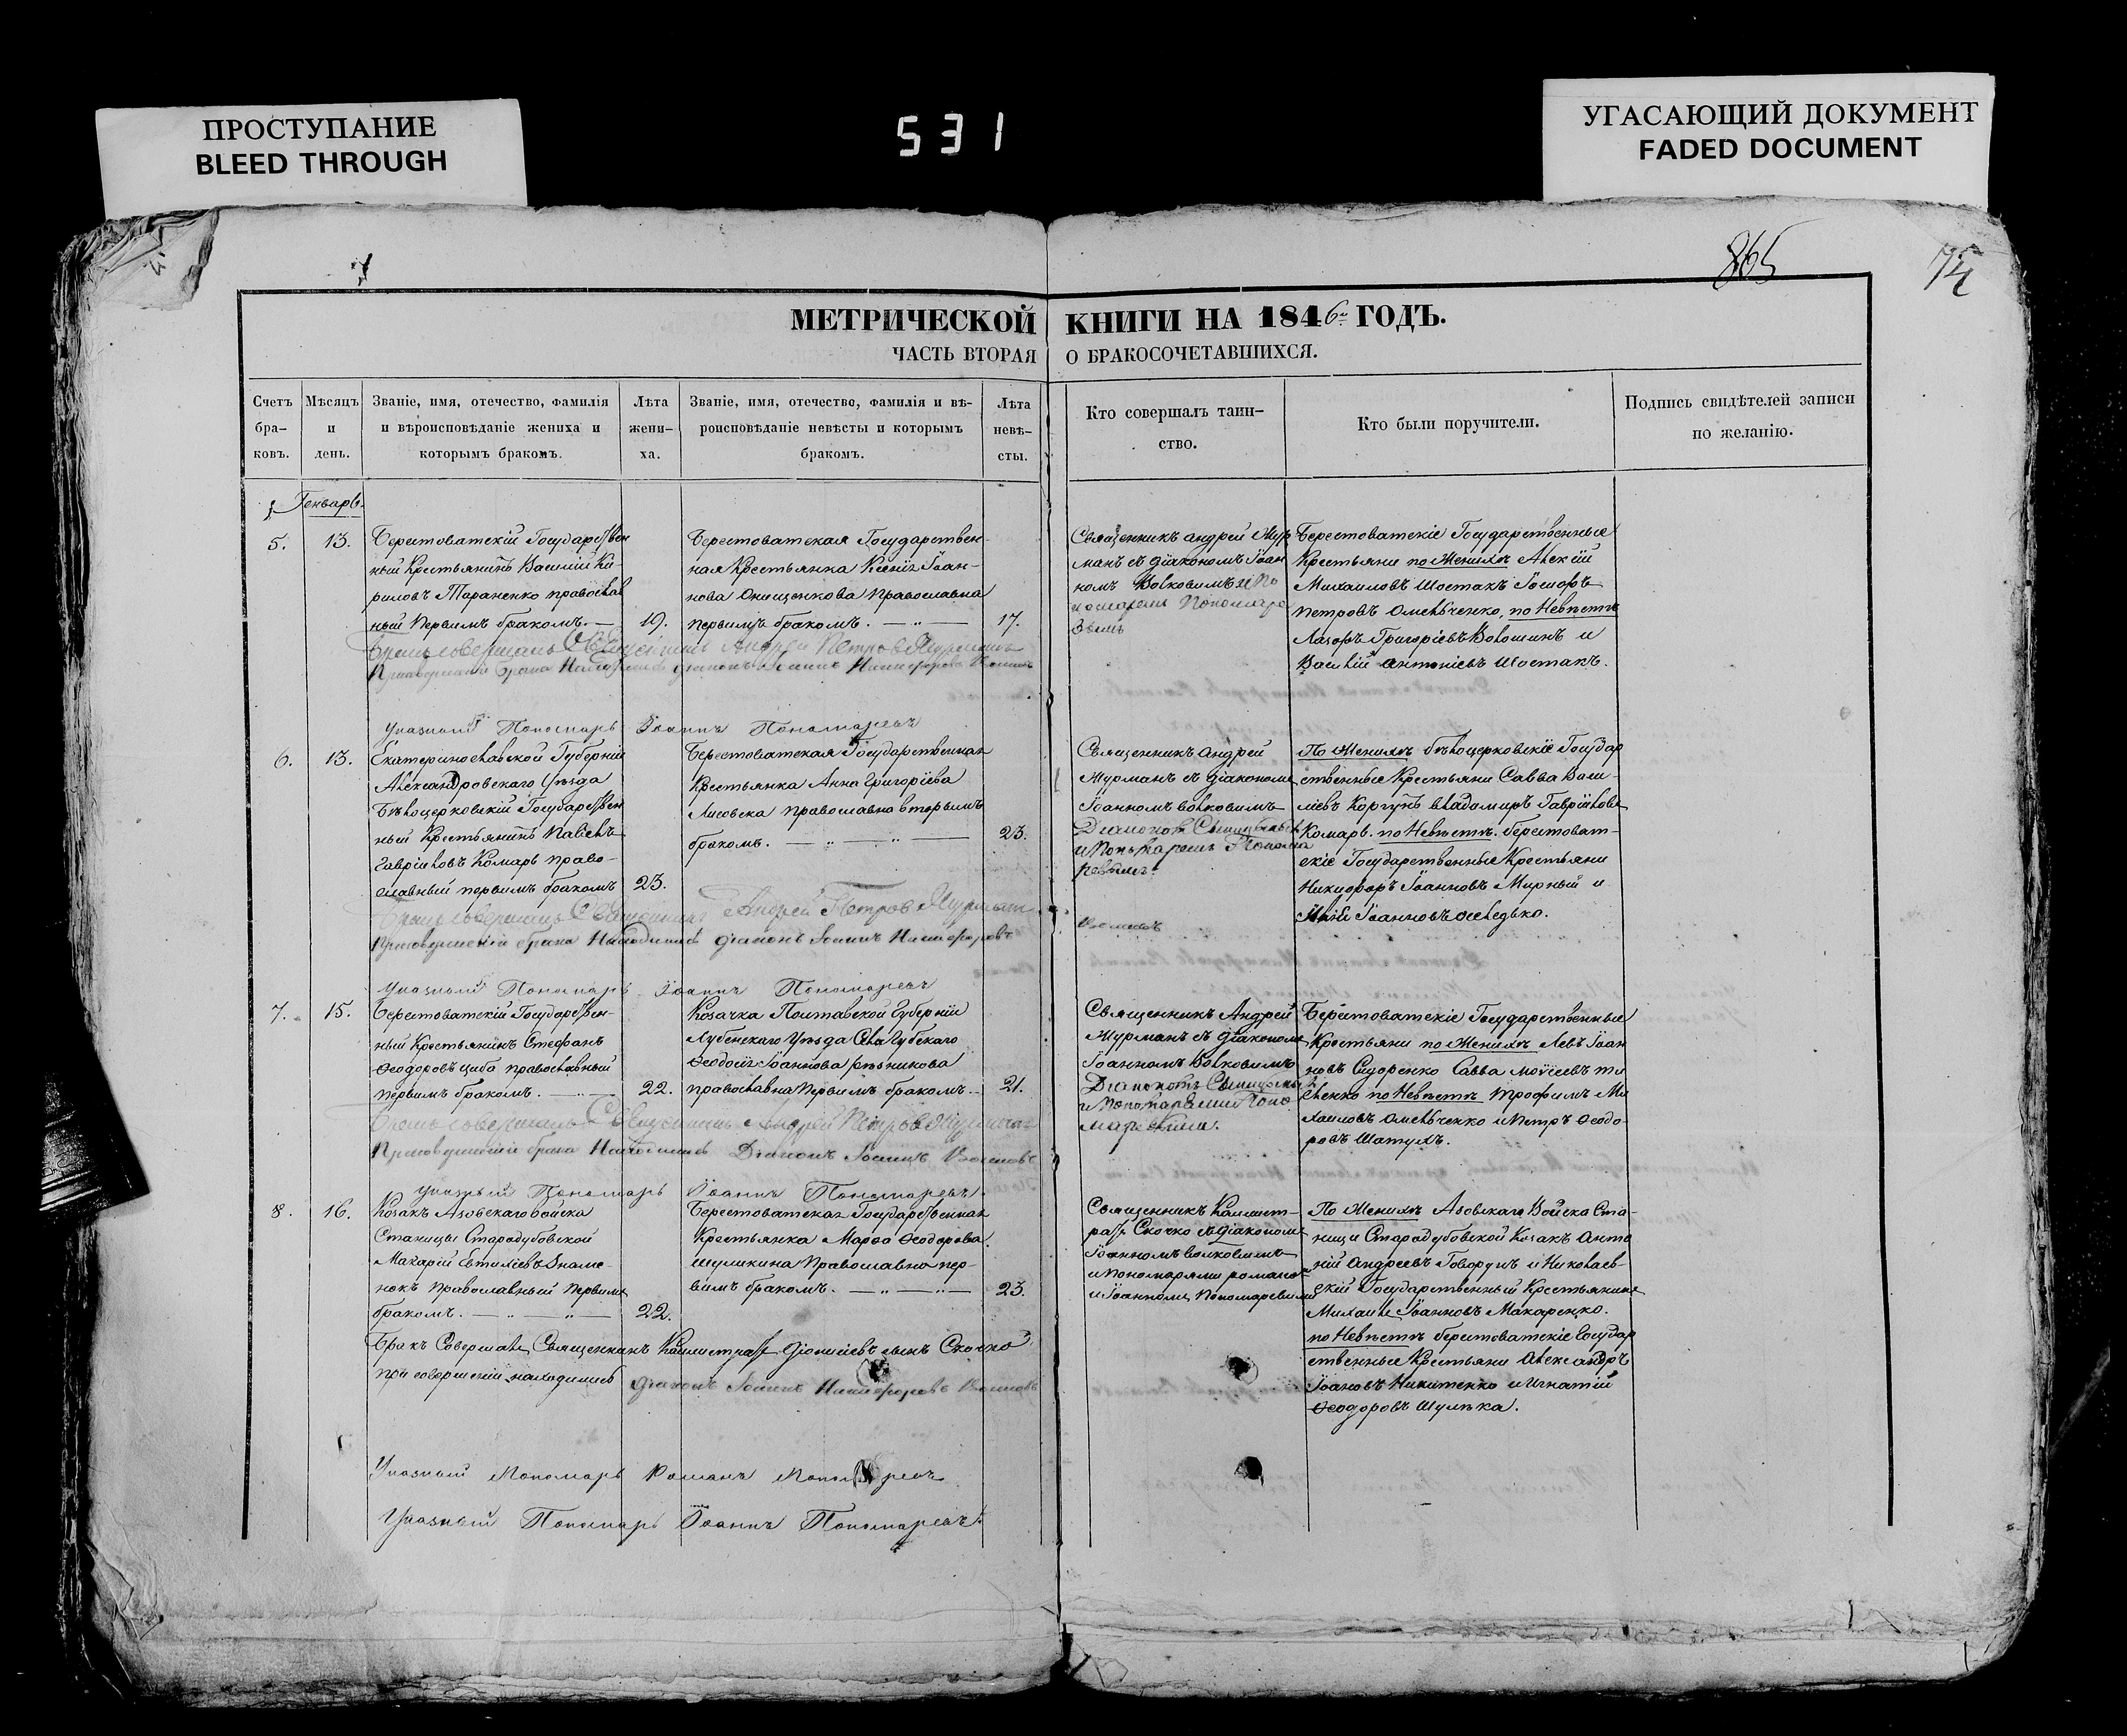 ПРОСТУПАНИЕ
BLEED THROUGH
531
УГАСАЮЩИЙ ДОКУМЕНТ
FADED DOCUMENT
7
865
МЕТРИЧЕСКОЙ КНИГИ НА 1846й ГОДЪ.
ЧАСТЬ ВТОРАЯ О БРАКОСОЧЕТАВШИХСЯ.
Счетъ
бра-
ковъ.
Мѣсяцъ
и
день.
Званіе, имя, отечество, фамилія
и вѣроисповѣданіе жениха и
которымъ бракомъ.
Лѣта
жени-
ха.
Званіе, имя, отечество, фамилія и вѣ-
роисповѣданіе невѣсты и которымъ
бракомъ.
Лѣта
невѣ-
сты.
Кто совершалъ таин-
ство.
Кто были поручители.
Подпись свидѣтелей записи
по желанію.
Генварь.
5.
13.
Берестоватскій Государствен
ный Крестьянинъ Василій Ки-
риловъ Тараненко православ
ный первимъ бракомъ.
19.
Берестоватская Государствен-
ная Крестьянка Ксенія Іоан-
нова Онищенкова православна
первимъ бракомъ.
17.
Священникъ Андрей Мур
манъ съ діакономъ Іоан
номъ Волковимъ и По
номаремъ Пономаре
вымъ
Берестоватскіе Государственные
Крестьяни по Женихѣ Алексій
Михаиловъ Шостакъ Іосифъ
Петровъ Омельченко, по Невѣстѣ
Лазоръ Григоріевъ Волошинъ и
Василій Антоніевъ Шостакъ.
Бракъ совершалъ Священникъ Андрей Петровъ Мурманъ
При совершеніи брака Находился діаконъ Іоаннъ Никифоровъ
Указный Пономарь Іоаннъ Пономаревъ
6.
13.
Екатеринославской Губерніи
Александровскаго Уѣзда
Бѣлоцерковскій Государствен
ный Крестьянинъ Павелъ
Гавріиловъ Комарь право-
славный первимъ бракомъ
23.
Берестоватская Государственная
Крестьянка Анна Григоріева
Лисовска православна вторымъ
бракомъ.
23.
Священникъ Андрей
Мурманъ съ діакономъ
Іоанномъ Волковимъ
и Пономаремъ Понома
ревымъ.
По Женихѣ бѣлоцерковскіе Государ
ственные Крестьяни Савва Васи-
ліевъ Коргунъ Владимиръ Гавріиловъ
Комарь. по Невѣстѣ. берестоват-
скіе Государственные Крестьяни
Никифоръ Іоанновъ Мирный и
Іоанновъ
Бракъ совершалъ Священникъ Андрей Петровъ Мурманъ
При совершеніи брака Находился діаконъ Іоаннъ Никифоровъ
Указный Пономарь Іоаннъ Пономаревъ
7.
15.
Берестоватскій Государствен-
ный Крестьянинъ Стефанъ
Ѳеодоровъ Циба православный
первимъ бракомъ.
22.
Козачка Полтавской Губерніи
Лубенскаго Уѣзда
Ѳеодосія Іоаннова Рѣзникова
православна Первимъ бракомъ.
21.
Священникъ Андрей
Мурманъ съ діакономъ
Іоанномъ Волковимъ
и Пономаремъ Поно
маревымъ.
Берестоватскіе Государственные
Крестьяни по Женихѣ Левъ Іоан
новъ Сидоренко Савва Моѵсіевъ
по Невѣстѣ Трофимъ Ми
хаиловъ Омельченко и Петръ Ѳеодо-
ровъ Шатухъ.
Бракъ совершалъ Священникъ Андрей Петровъ Мурманъ
При совершеніи брака Находился Діаконъ Іоаннъ
Указный Пономарь Іоаннъ Пономаревъ
8.
16.
Козакъ Азовскаго войска
Станицы Стародубовской
Макарій Евтиміевъ Знаме-
нокъ православный первимъ
бракомъ.
22.
Берестоватская Государственная
Крестьянка Марѳа Ѳеодорова
Шуликина Православна пер-
вимъ бракомъ.
23.
Священникъ Каллист-
ратъ Скочко съ діакономъ
Іоанномъ Волковимъ
и Пономарями Романомъ
и Іоанномъ Пономаревими
По Женихѣ Азовскаго Войска Ста-
ницы Стародубовской Козакъ Анто
ній Андреевъ Говорунъ и Николаев-
скій Государственный Крестьянинъ
Михаилъ Іоанновъ Макаренко.
по Невѣстѣ берестоватскіе Государ
ственные Крестьяни Александръ
Іоановъ Никитенко и Игнатій
Ѳеодоровъ Шулика.
Бракъ Совершалъ Священникъ Каллистратъ Діонисіевъ сынъ Скочко
при совершеніи находились діаконъ Іоаннъ Никифоровъ
Указный Пономарь Романъ Пономаревъ
Указный Пономарь Іоаннъ Пономаревъ